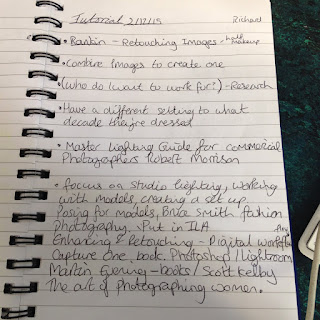 Tutorial 2/12/15 Richard
• Rankin - Retouching Images - half makeup
• Combine Images to create one
• (Who do I want to work for?) - Research
• Have a different setting to what
decade they're dressed
• Master Lighting Guide for commercial
Photographers Robert Morrison
• focus on studio lighting, working
with models, creating a set up
Posing for models, Brice Smith fashion
photography. Put in ILA
Enhancing & Retouching - Digital workflow
Capture one book. Photoshop / Lightroom
Martin Evening - books / Scott Kelby
The art of photographing women.